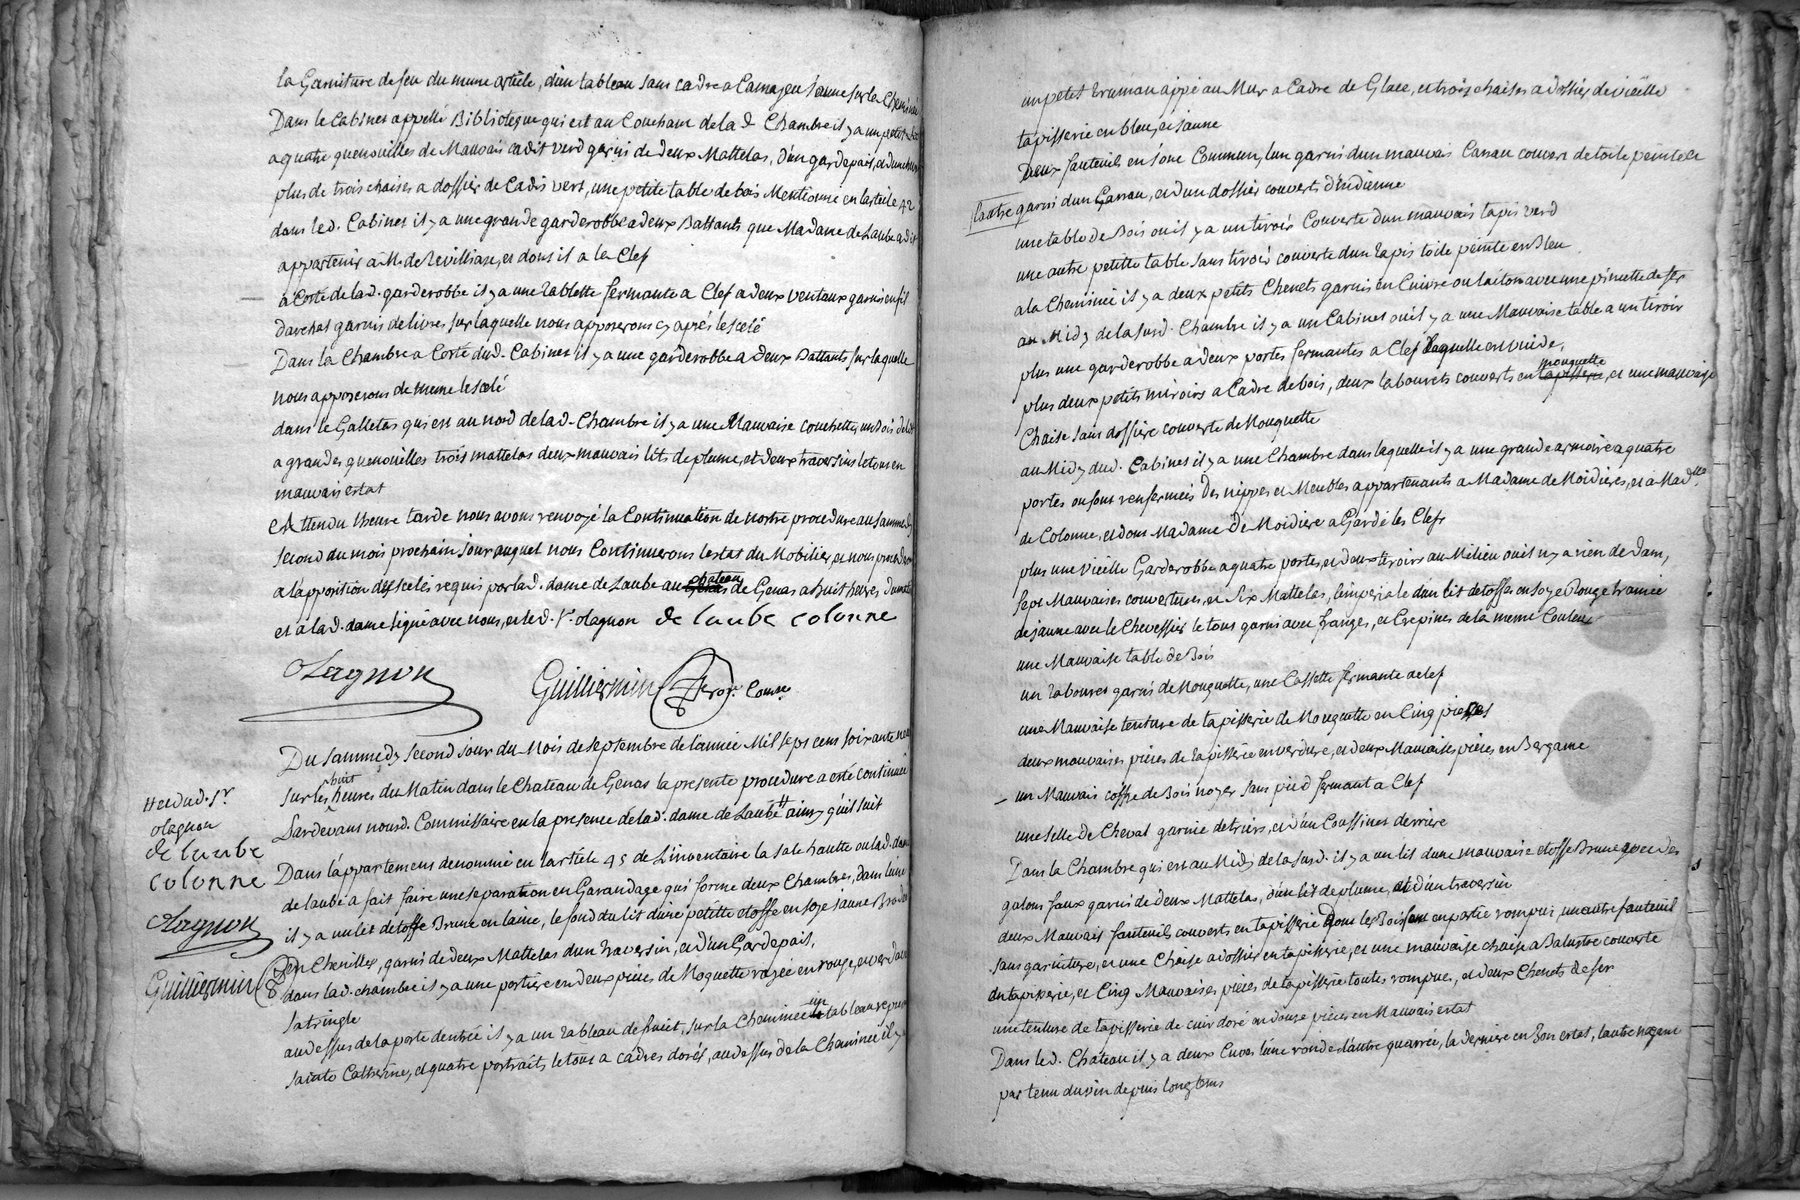 la Garniture de feu du meme article, d'un tableau sans cadre a Camayeu jaune sur la Cheminée
Dans le Cabinet appellé Biblioteque qui est au Couchant de lad Chambre il y a un petit
a quatre quenouilles de Mauvais cadit verd garni de deux Mattelas, d'un gardepail, et d'une
plus de trois chaises a dossier de Cadis vert, une petite table de bois Mentionné en l'article 42
dans led. Cabinet il y a une grande garderobbe a deux Battants que Madame de Laube a dit
appartenir a M. de Revilliase, et dont il a la Clef
a Corté de lad. garderobbe il y a une Tablette fermante a Clef a deux ventaux garnis en fil
d'archat garnis de livres sur laquelle nous apposerons cy aprés le scelé
Dans la Chambre a Corté dud. Cabinet il y a une garderobbe a deux Battants sur laquelle
nous apposerons de meme le scelé
dans le Galletas qui est au nord de lad. Chambre il y a une Mauvaise couchette, un bois de lit
a grandes quenouilles trois mattelas deux mauvais lits de plume, et deux traversins le tous en
mauvais estat
Attendu l'heure tarde nous avons renvoyé la Continuation de nostre procedure au sammedy
second du mois prochain jour auquel nous Continuerons l'estat du Mobilier, et nous procederons
a l'apposition des scelés requis par lad. dame de Laube au chateau de Genas a huit heures du matin
et a lad. dame signé avec nous, et led. Sr. olagnon de laube colonne
Olagnon
Guilliermin
Du sammedy second jour du Mois de septembre de l'année Mil sept cens soixante neuf
sur les huit heures du Matin dans le Chateau de Genas la presente procedure a esté continuée
Pardevant nousd. Commissaire en la presence de lad. dame de Laube # ainsy qu'il suit
# et dud. Sr
olagnon
de laube
colonne
Olagnon
Guilliermin
Dans l'appartement denommé en l'article 45 de L'inventaire la sale hautte ou lad. dame
de laube a fait faire une separation en Garandage qui forme deux Chambres, dans l'une
il y a un lit d'etoffe Brune en laine, le fond du lit d'une petitte etoffe en soye jaune Brodée
en Chenilles, garni de deux Mattelas d'un traversin, et d'un Gardepail,
dans lad. chambre il y a une portiere en deux pieces de Moquette rayée en rouge, et verd avec
sa tringle
au dessus de la porte d'entrée il y a un Tableau de fruit, sur la Cheminée un tableau
sainte Catherine, et quatre portraits, le tous a cadres dorés, au dessus de la Cheminée il y a
un petit Trumau appé au Mur a Cadre de Glace, et trois chaises a dossier de vieille
tapisserie en bleu, et jaune
Deux fauteuil en jonc Commun, l'un garni d'un mauvais Carrau couvert de toile peinte et
l'autre garni d'un Carrau, et d'un dossier couverts d'indienne
une table de Bois ou il y a un tiroir Couverte d'un mauvais tapis verd
une autre petitte table sans tiroir couverte d'un Tapis toile peinte en Bleu
a la Cheminée il y a deux petits Chenets garnis en Cuivre ou laiton avec une pincette de fer
au Midy de la susd. Chambre il y a un Cabinet ou il y a une Mauvaise table a un tiroir
plus une garderobbe a deux portes fermantes a Clef laquelle en vuide,
plus deux petits miroirs a Cadre de bois, deux tabourets couverts en mouquette, et une mauvaise
Chaise sans dossiere couverte de Mouquette
au Midy dud. Cabinet il y a une Chambre dans laquelle il y a une grande armoire a quatre
portes ou sont renfermeés des nippes et Meubles appartenants a Madame de Moidieres, et a Madlle
de Colonne, et dont Madame de Moidiere a Gardé les Clefs
plus une vieille Garderobbe a quatre portes, et deux tiroirs au Milieu ou il n'y a rien dedans,
sept Mauvaises couvertures, et six Mattelas, l'imperiale d'un lit d'etoffe en soye Rouge tramée
de jaune avec le Chevessier le tous garni avec franges, et Crepines de la meme Couleur
une Mauvaise table de Bois
un Tabouret garni de Mouquette, une Cassette fermante a clef
une Mauvaise tenture de tapisserie de Mouquette en Cinq pieces
deux mauvaises pieces de Tapisserie en verdure, et deux Mauvaises pieces en Bergame
un Mauvais coffre de Bois noyer sans pied fermant a Clef
une selle de Cheval garnie d'etriers, et d'un Coussinet derriere
Dans la Chambre qui est au Midy de la susd. il y a un lit d'une mauvaise etoffe Brune avec des
galons faux garni de deux Mattelas, d'un lit de plume, et d'un traversin
deux Mauvais fauteuils couverts en tapisserie dont les Bois sont en partie rompus, un autre fauteuil
sans garniture, et une Chaise a dossier en tapisserie, et une mauvaise chaise a Balustre couverte
en tapisserie, et Cinq Mauvaises pieces de tapisserie toutes rompues, et deux Chenets de fer
une tenture de tapisserie de cuir doré en douze pieces en Mauvais estat
Dans led. Chateau il y a deux Cuves l'une ronde l'autre quarrée, la derniere en Bon estat, l'autre n'ayant
pas tenu du vin depuis longtems